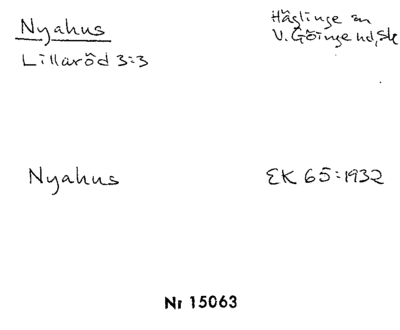 Nyahus
Häglinge sn
V. Göinge hd, Sk
Lillaröd 3:3
Nyahus
EK 65:1932
Nr 15063